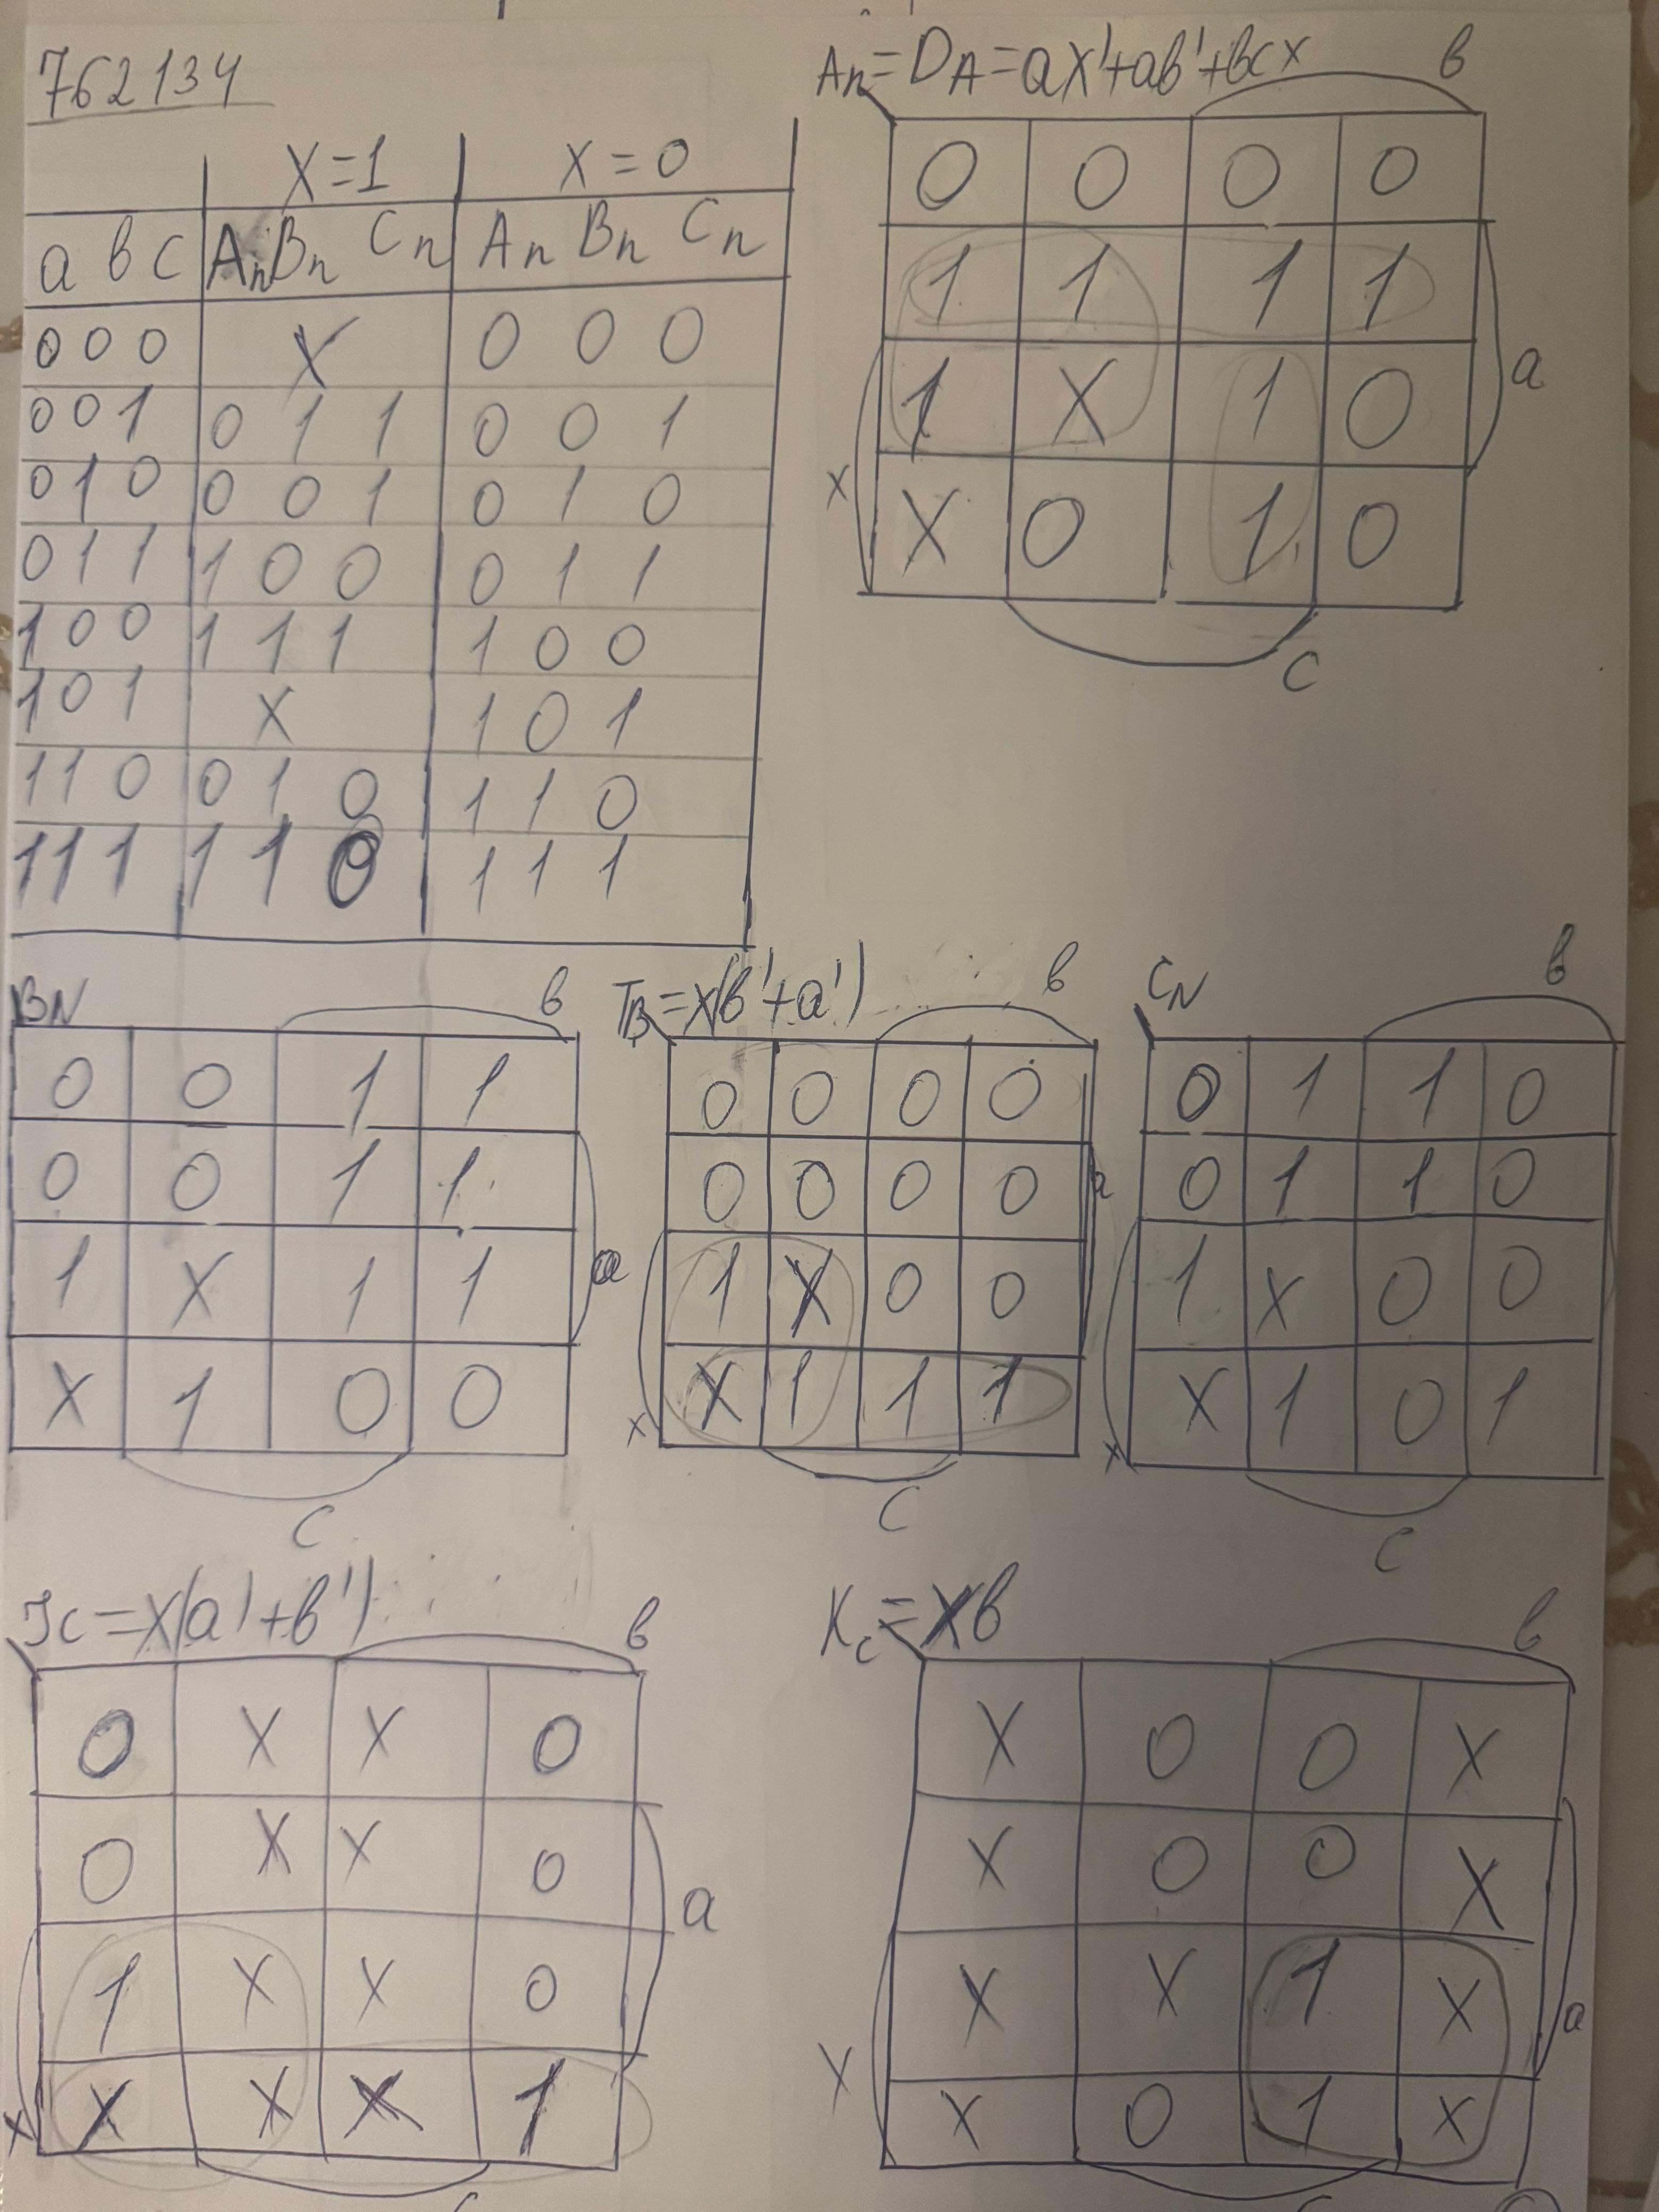 762134
X=1 X=0
a в c An Bn Cn An Bn Cn
0 0 0 X 0 0 0
0 0 1 0 1 1 0 0 1
0 1 0 0 0 1 0 1 0
0 1 1 1 0 0 0 1 1
1 0 0 1 1 1 1 0 0
1 0 1 X 1 0 1
1 1 0 0 1 0 1 1 0
1 1 1 1 1 0 1 1 1
An=DA=ax'+aв'+вcx
в
0 0 0 0
1 1 1 1
1 X 1 0
X 0 1 0
a
x
c
BN
в
0 0 1 1
0 0 1 1
1 X 1 1
X 1 0 0
a
c
TB=x(в'+a')
в
0 0 0 0
0 0 0 0
1 X 0 0
X 1 1 1
a
x
c
CN
в
0 1 1 0
0 1 1 0
1 X 0 0
X 1 0 1
x
c
Jc=x(a'+в')
в
0 X X 0
0 X X 0
1 X X 0
X X X 1
a
x
c
Kc=Xв
в
X 0 0 X
X 0 0 X
X X 1 X
X 0 1 X
a
x
c